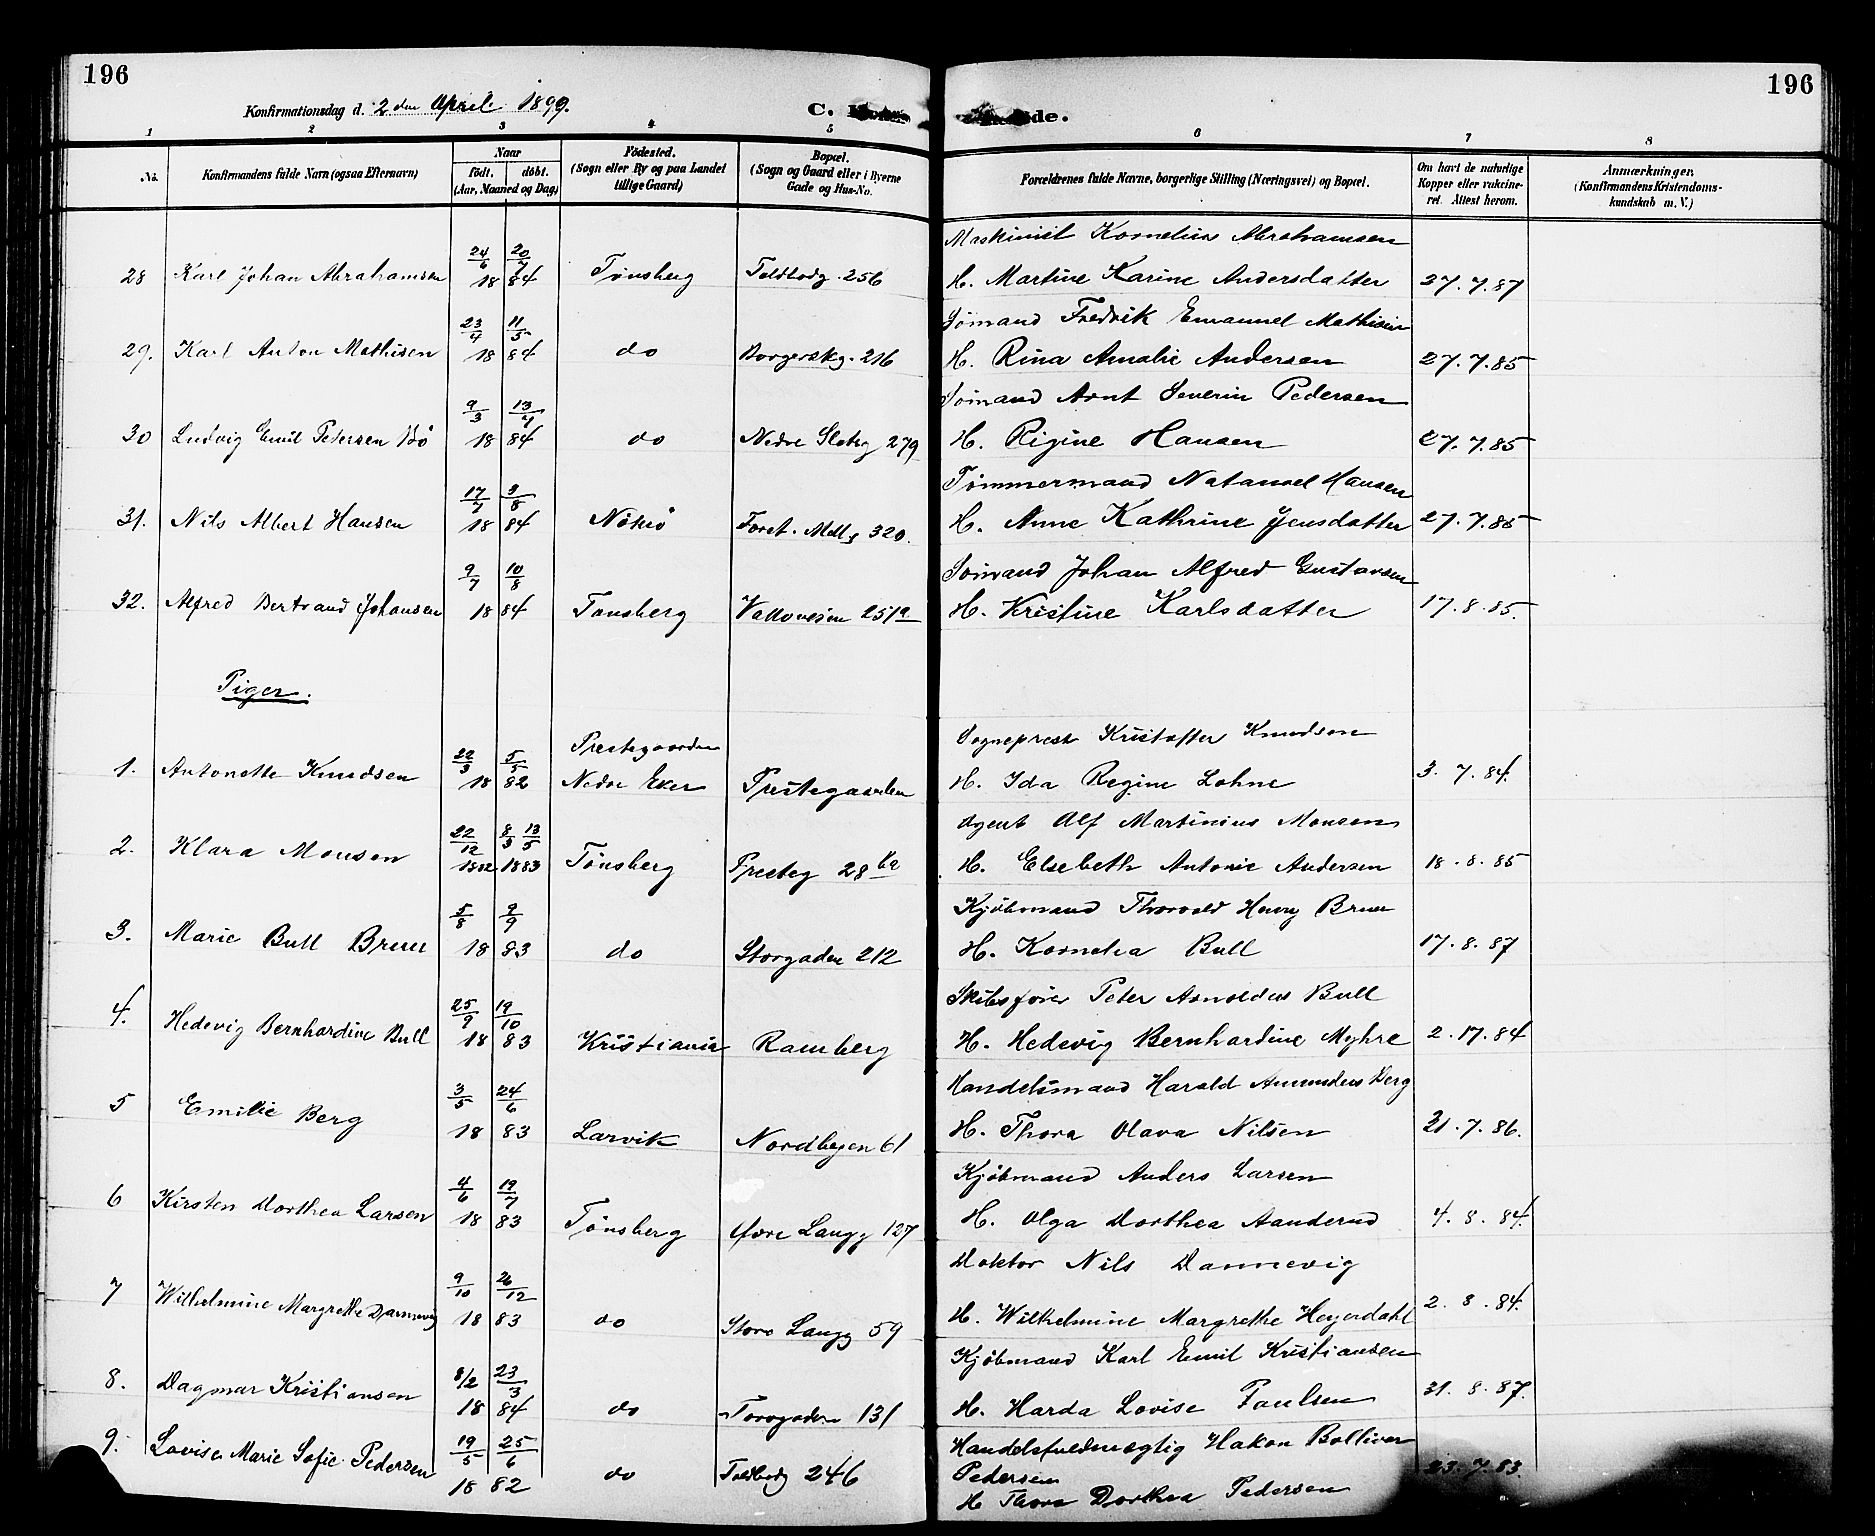 196
196
Konfirmationsdag d. 2den April 1899.
C. de.
1 2 3 4 5 6 7 8
No.
Konfirmandens fulde Navn (ogsaa Efternavn)
Naar
født. døbt.
(Aar, Maaned og Dag)
Fødested.
(Sogn eller By og paa Landet
tillige Gaard)
Bopæl.
(Sogn og Gaard eller i Byerne
Gade og Hus-No.
Forældrenes fulde Navne, borgerlige Stilling (Næringsvei) og Bopæl.
Om havt de naturlige
Kopper eller vakcine-
ret. Attest herom.
Anmærkninger.
(Konfirmandens Kristendoms-
kundskab m. V.)
24/6 20/7 Maskinist Kornelius Abrahamsen
28 Karl Johan Abrahamsen 18 84 Tønsberg Toldbodg. 256 H. Martine Karine Andersdatter 27.7.87
23/4 11/5 Sømand Fredrik Emanuel Mathisen
29. Karl Anton Mathisen 18 84 do Borgerskg. 216 H. Rina Amalie Andersen 27.7.85
9/3 13/4 Sømand Arnt Severin Pedersen
30 Ludvig Emil Petersen Bö 18 84 do Nedre Slotsg 279 H. Rigine Hansen 27.7.85
17/7 3/8 Tømmermand Natanael Hansen
31. Nils Albert Hansen 18 84 Nöterö Foret. Mellg 320. H. Anne Kathrine Jensdatter 27.7.85
9/7 10/8 Sömand Johan Alfred Gustavsen
32. Alfred Bertrand Johansen 18 84 Tønsberg Valloveien 251a H. Kristine Karlsdatter 17.8.85.
Piger.
22/3 5/5 Prestegaarden Sogneprest Kristoffer Knudsen
1. Antonette Knudsen 18 82 Nedre Eker Prestegaarden H. Ida Regine Lohne 3. 7. 84.
22/12 8/3 13/5 Agent Alf Martinius Monsen
2. Klara Monsen 1882 1883 Tønsberg Presteg 28 ba H. Elsebeth Antonie Andersen 18.8.85
5/8 9/9 Kjøbmand Thorvald Henry Bruu
3. Marie Bull Bruu 18 83 do Storgaden 212 H. Kornelia Bull 17.8.87
25/9 19/10 Skibsfører Peter Arnoldus Bull
4. Hedevig Bernhardine Bull 18 83 Kristiania Ramberg H. Hedevig Bernhardine Myhre 2.17.84
3/5 24/6 Handelsmand Harald Amundus Berg
5 Emilie Berg 18 83 Larvik Nordbyen 61 H. Thora Olava Nilsen 21.7.86.
4/6 19/7 Kjøbmand Anders Larsen
6 Kirsten Dorthea Larsen 18 83 Tønsberg Øvre Langg 127 H. Olga Dorthea Aanderud 4.8.84.
9/10 26/12 Doktor Nils Dannevig
7 Wilhelmine Margrethe Dannevig 18 83 do Store Langg 59 H. Wilhelmine Margrethe Heyerdahl 2.8.84.
8/2 23/3 Kjøbmand Karl Emil Kristiansen
8. Dagmar Kristiansen 18 84 do Torvgaden 131 H. Harda Lovise Paulsen 31.8.87.
19/5 25/6 Handelsfuldmægtig Hakon Bolliver
9. Lovise Marie Sofie Pedersen 18 82 do Toldbodg 246 Pedersen 23.7.83.
H Thora Dorthea Pedersen